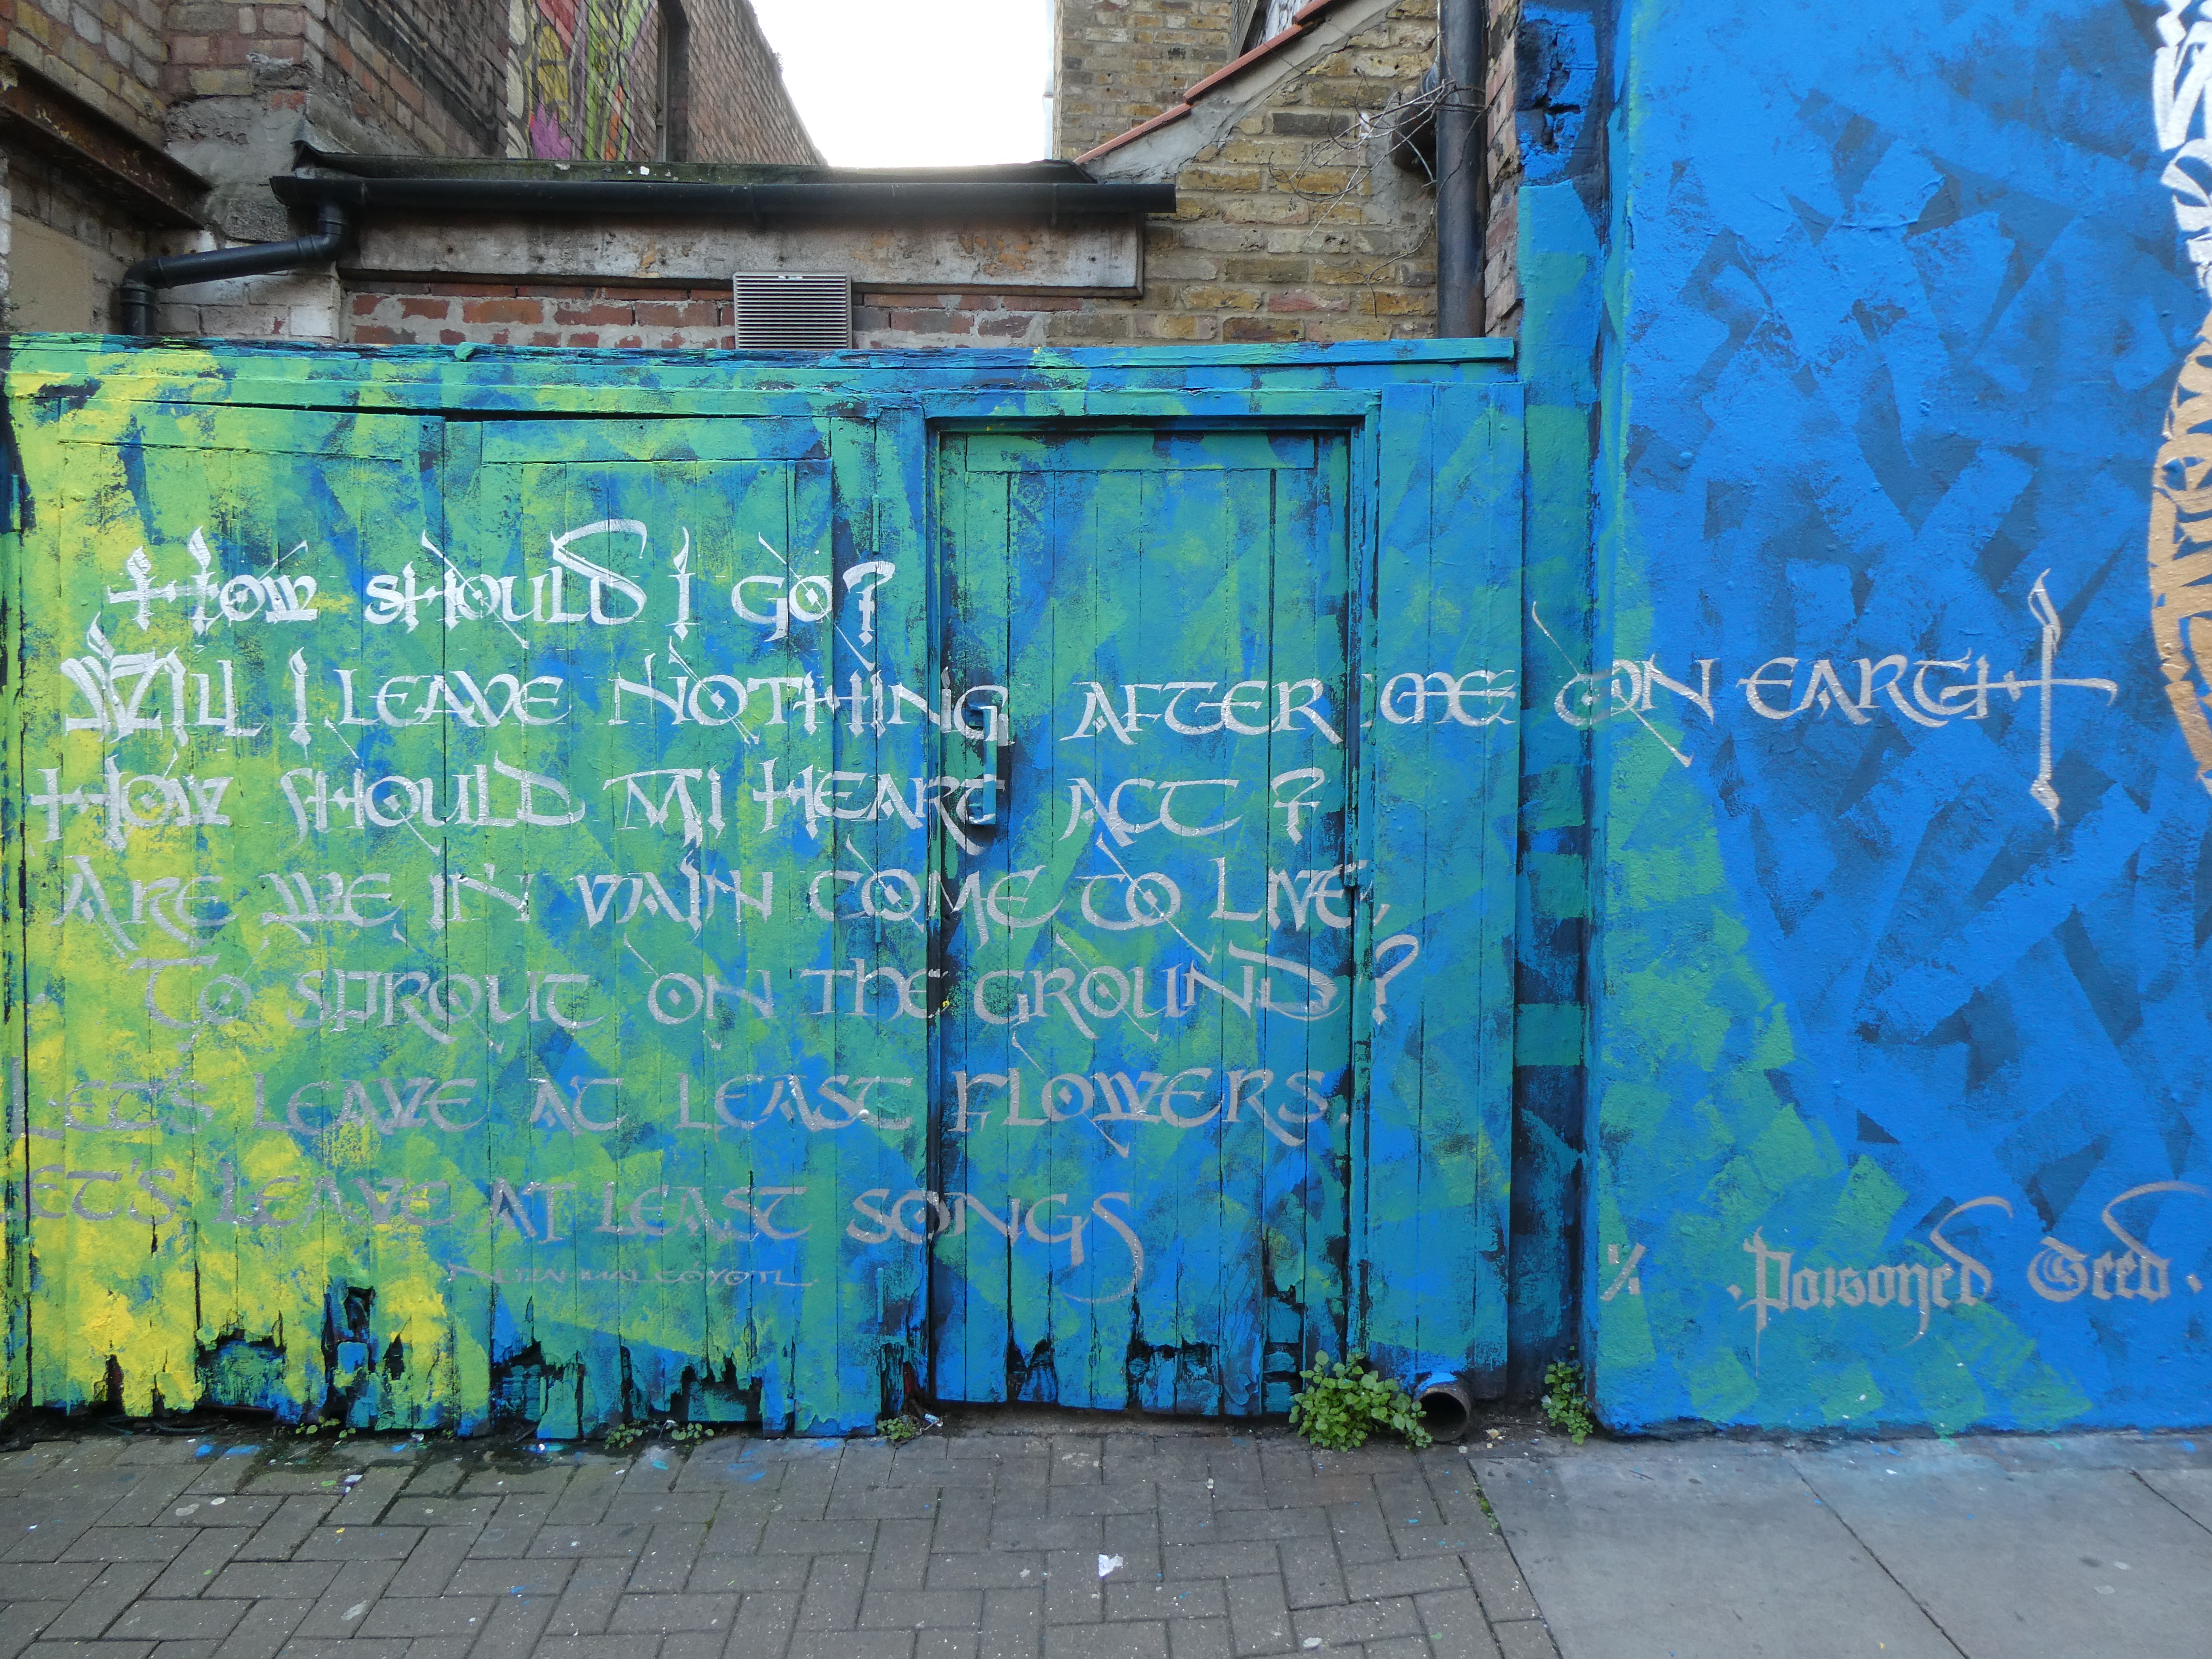 How should I go?
Will I leave nothing after me on earth
How should mi heart act?
Are we in vain come to live,
To sprout on the ground?
Let's leave at least flowers.
Let's leave at least songs
Poisoned Seed